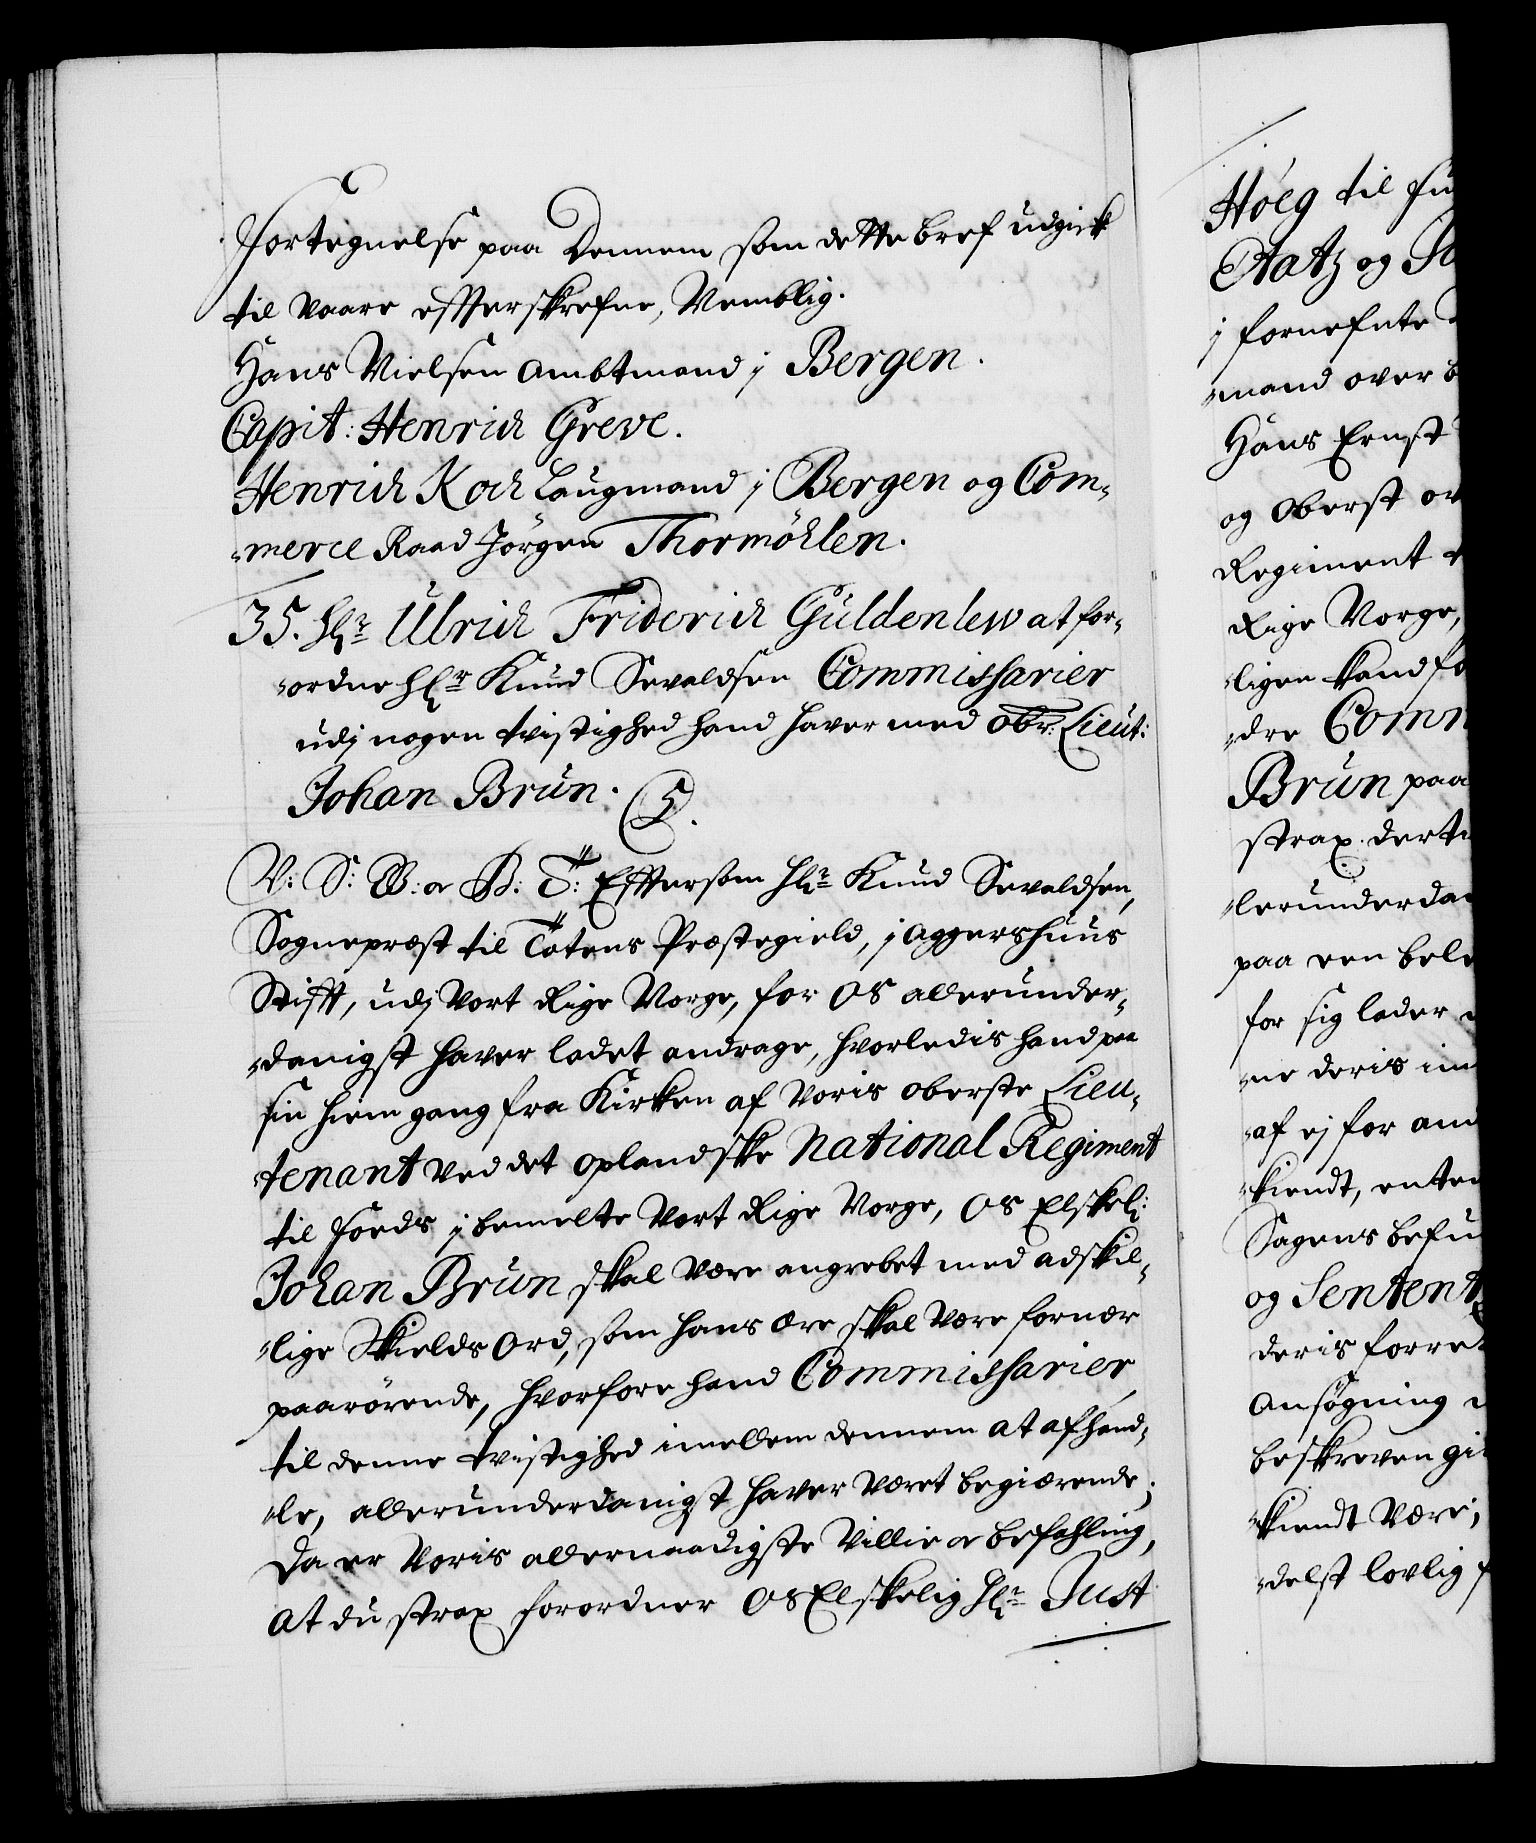 Fortegnelse paa Dennem som dette bref udgick
til vaare effterskrefne, Nemblig.
Hans Nielsen Ambtmand j Bergen.
Capit: Henrich Greve.
Henrich Koch Laugmand j Bergen og Com-
-merce Raad Jørgen Thormöhlen.
35. Hr Ulrich Friderich Güldenlew at for-
-ordne Hr Knud Sevaldsen Commissarier
udj nogen tvistighed hand haver med Obr: Lieut:
Johan Brün.
V: S: G: a B: T: Efftersom Hr Knud Sevaldsen,
Sognepræst til Totens Præstegield, j Aggershuus
Stifft, udj Vort Rige Norge, for OS allerunder-
-danigst haver ladet andrage, hvorledis hand paa
sin hiem gang fra Kirken af Voris Oberste Lieu-
-tenant ved det Oplandske National Regiment
til foeds j bemelte Vort Rige Norge, OS Elskel:
Johan Brün skal være angrebet med adskil-
-lige Skields Ord, som hans ære skal være fornær
paarörende, hvorfore hand Commissarier
til denne tvistighed imellem dennem at afhand-
-le, allerunderdanigst haver været begiærende;
Da er Voris allernaadigste Villie oc befahling,
at du strax forordner OS Elskelig Hr Just
Höeg til
Etatz og
j fornefnte
-mand over
Hans Ernst
og Oberst
Regiment
Rige Norge,
-ligen
-dre
Brün paa
strax
paa een
for sig lader
-ne deris
-af ej for
-kiendt,
Sagens
og
deris
Ansøgning
beskreven
-kiendt være;
-delst lovlig